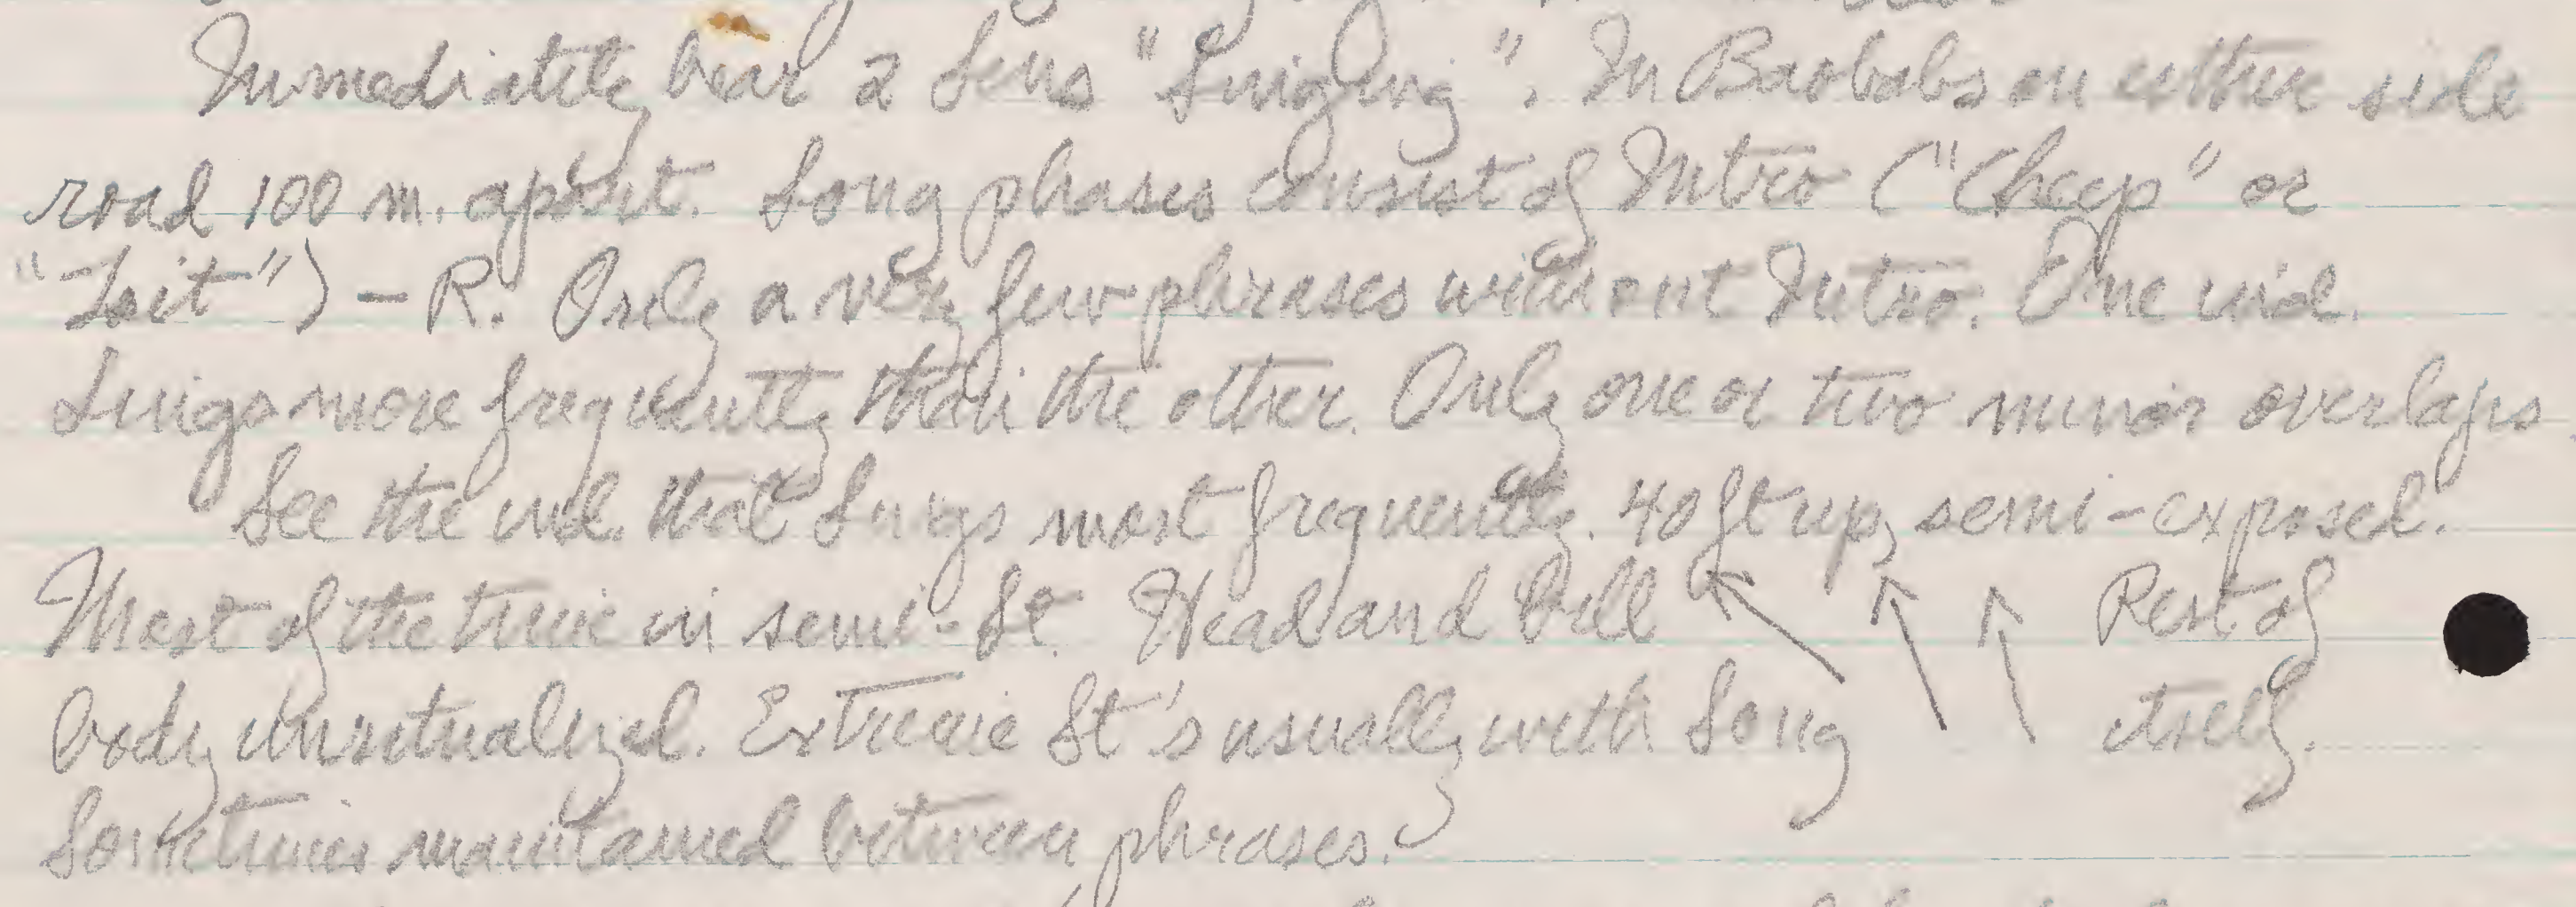 Immediately hear 2 Sens "Singing". In Baobabs on either side
road 100 m. apart. Song phases consist of Intro ("Cheep" or
"Tsit") – R. Only a very few phrases without Intro. One ind.
Sings more frequently than the other. Only one or two minor overlaps.
See the ind. that Sings most frequently. 40 ft up, semi-exposed.
Most of the time in semi-St. Head and bill ↖ ↑ ↑ Rest of
body unritualized. Extreme St's usually with Song itself.
Sometimes maintained between phrases.